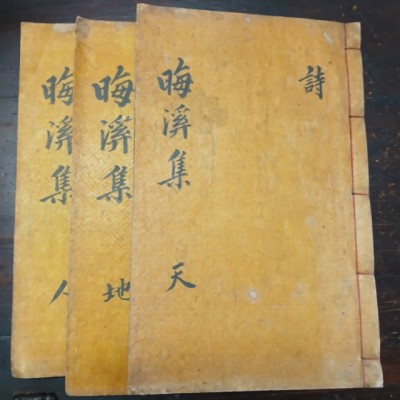 詩
晦溪集 天
晦溪集 地
晦溪集 人